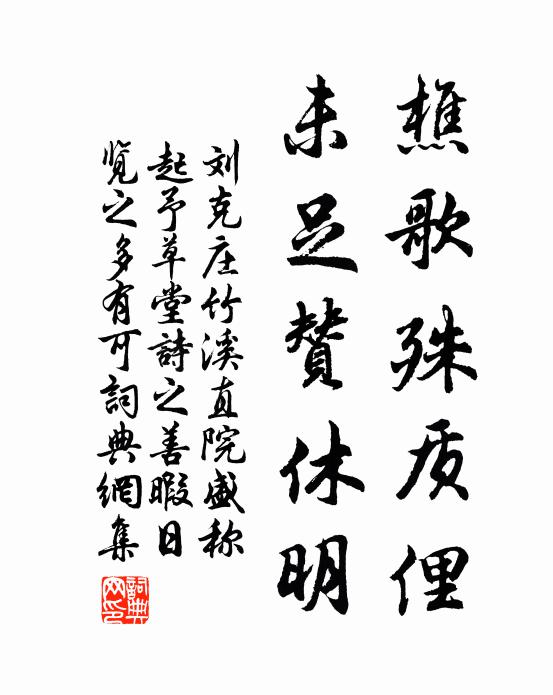 樵歌殊质俚
未足赞休明
刘克庄竹溪直院盛称
起予草堂詩之善暇日
览之多有可詞典網集
詞典网印